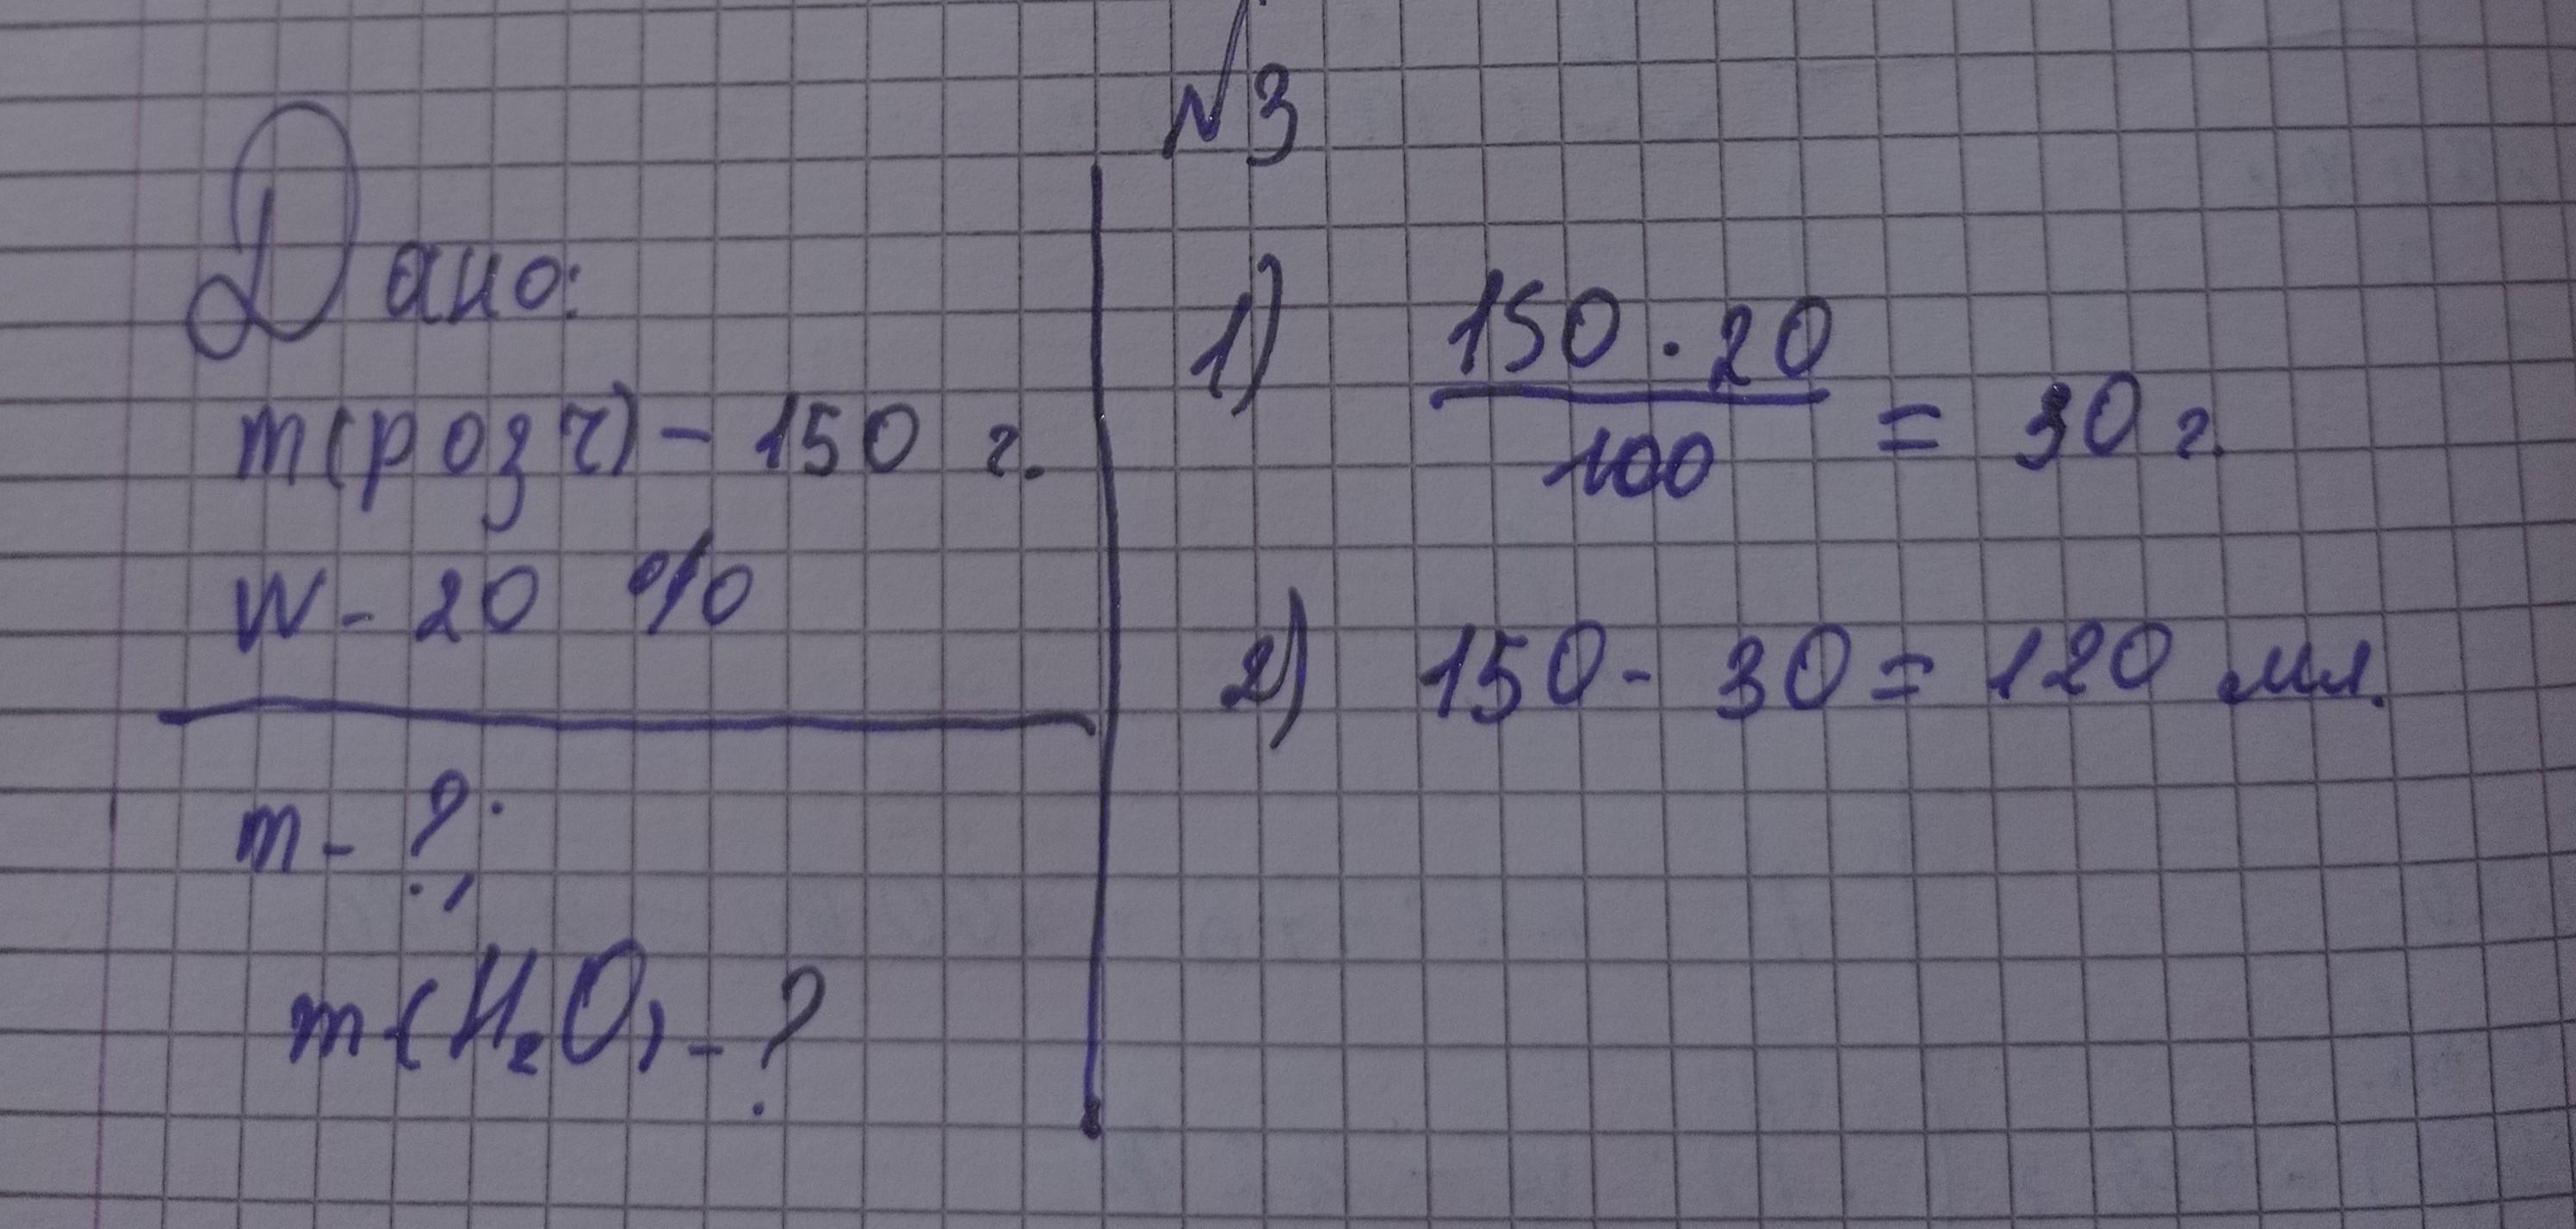 №3
Дано:
m(розч) - 150 г.
W - 20 %
m - ?;
m(H₂O) - ?
1) 150 · 20 / 100 = 30 г.
2) 150 - 30 = 120 мл.